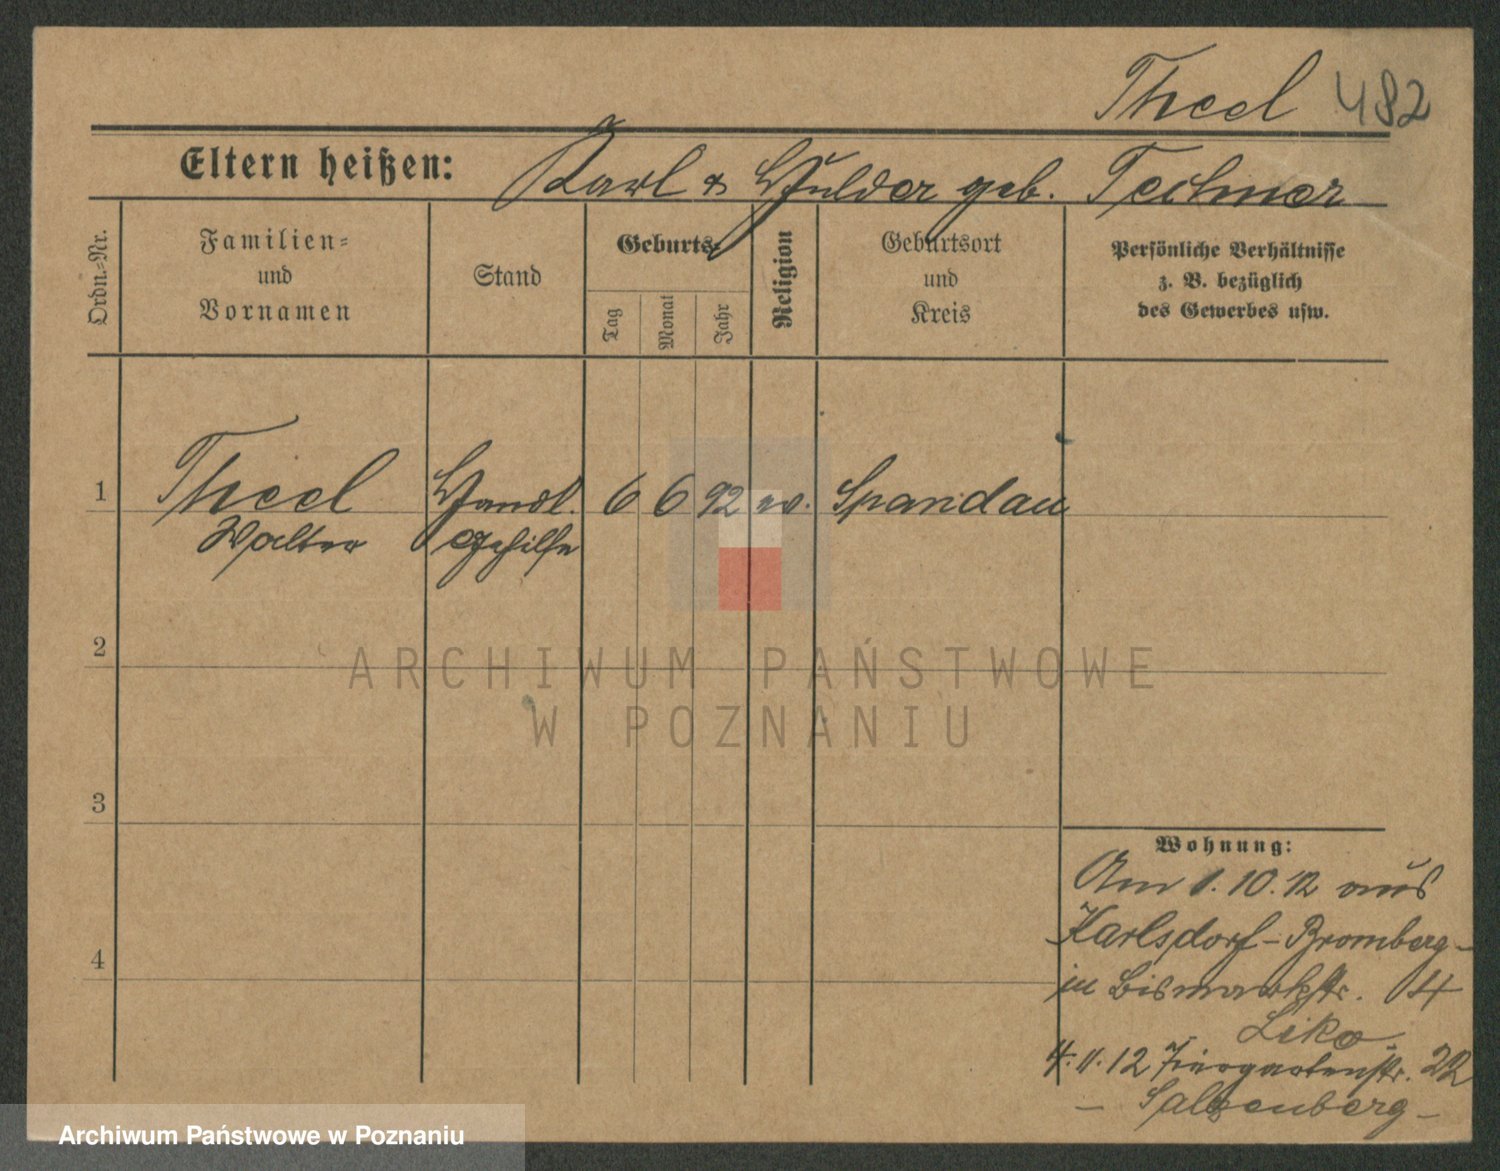 Theel 482
Eltern heißen: Karl & Hulder geb. Techmer
Ordn.=Nr.
Familien=
und
Vornamen
Stand
Geburts=
Tag
Monat
Jahr
Religion
Geburtsort
und
Kreis
Persönliche Verhältnisse
z. B. bezüglich
des Gewerbes usw.
1 Theel Handl. 6 6 92 ev. Spandau
Walter Gehilfe
2
ARCHIWUM PAŃSTWOWE
W POZNANIU
3
Wohnung:
Am 1. 10. 12 aus
Karlsdorf - Bromberg -
in Bismarkstr. 4
4
Liko
4. 11. 12 Tiergartenstr. 22
- Salzenberg -
Archiwum Państwowe w Poznaniu